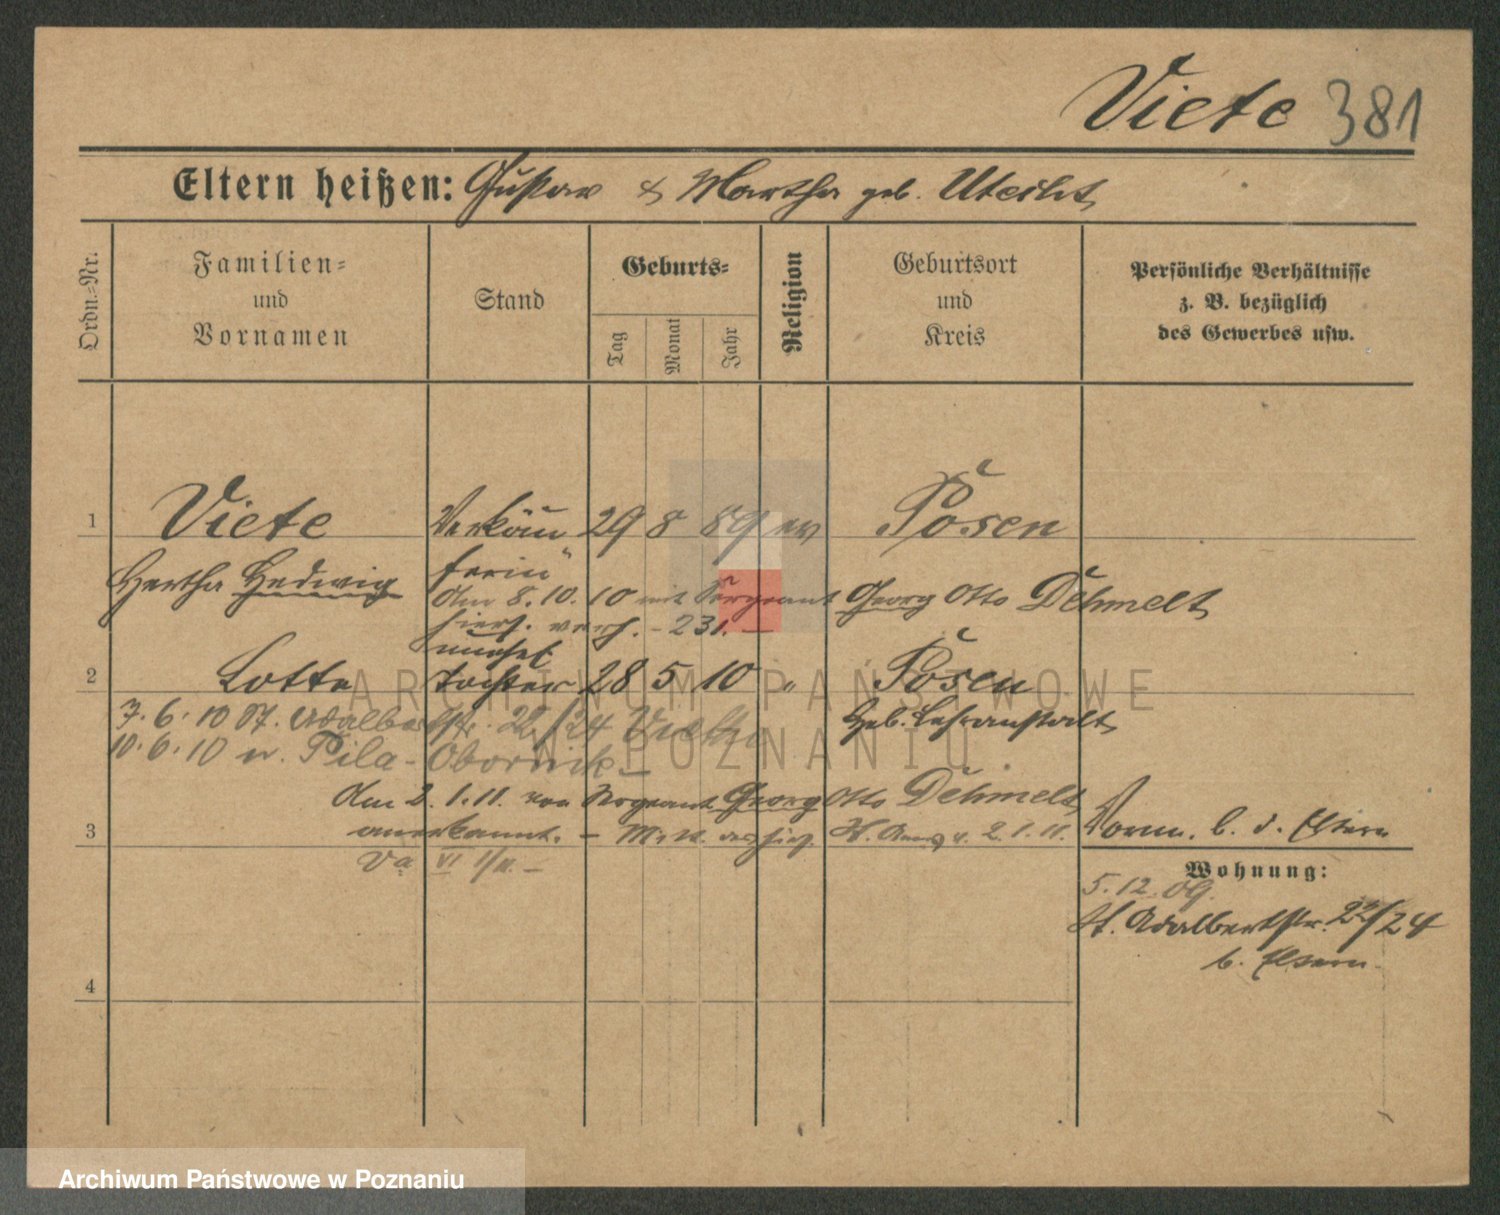 Viete 381
Eltern heißen: Gustav & Martha geb. Uteiht
Ordn.-Nr.
Familien-
und
Vornamen
Stand
Geburts-
Tag
Monat
Jahr
Religion
Geburtsort
und
Kreis
Persönliche Verhältnisse
z. B. bezüglich
des Gewerbes usw.
1 Viete Verkäu 29 8 89 ev Posen
Hertha Hedwig ferin
Am 8.10.10 mit Sergeant Georg Otto Dehmelt
hiers. verh. - 231. -
unehel
2 Lotte Tochter 28 5 10 " Posen
7.6.10 St. Adalbertstr. 22/24 Viete
Heb. Lehranstalt
10.6.10 n. Pila - Obornik -
Am 2.1.11. von Sergeant Georg Otto Dehmelt
3 anerkannt. - 2.1.11.
Va VI 1/11. -
Vorm. b. d. Eltern
Wohnung:
5.12.09.
St. Adalbertstr. 22/24
b. Eltern.
4
ARCHIWUM PAŃSTWOWE
W POZNANIU
Archiwum Państwowe w Poznaniu